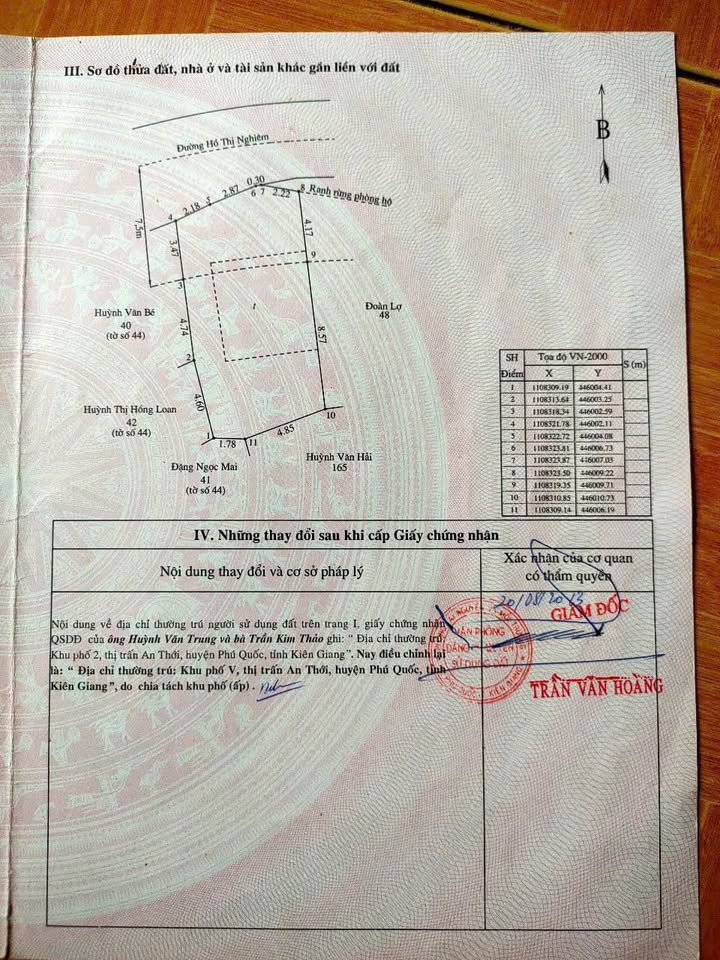 III. Sơ đồ thửa đất, nhà ở và tài sản khác gắn liền với đất
B
Đường Hồ Thị Nghiêm
7.5m
4
2.18
5
2.87
0.30
6
7
2.22
8
Ranh rừng phòng hộ
3.47
4.17
3
9
Huỳnh Văn Bé
40
(tờ số 44)
4.74
1
8.57
Đoàn Lợ
48
2
Huỳnh Thị Hồng Loan
42
(tờ số 44)
4.60
1
1.78
11
4.85
10
Đặng Ngọc Mai
41
(tờ số 44)
Huỳnh Văn Hải
165
SH Điểm Tọa độ VN-2000 S (m)
X Y
1 1108309.19 446004.41
2 1108313.64 446003.25
3 1108318.34 446002.59
4 1108321.78 446002.11
5 1108322.72 446004.08
6 1108323.81 446006.73
7 1108323.87 446007.03
8 1108323.50 446009.22
9 1108319.35 446009.71
10 1108310.85 446010.73
11 1108309.14 446006.19
IV. Những thay đổi sau khi cấp Giấy chứng nhận
Nội dung thay đổi và cơ sở pháp lý
Xác nhận của cơ quan
có thẩm quyền
Nội dung về địa chỉ thường trú người sử dụng đất trên trang I, giấy chứng nhận
QSDĐ của ông Huỳnh Văn Trung và bà Trần Kim Thảo ghi: “ Địa chỉ thường trú:
Khu phố 2, thị trấn An Thới, huyện Phú Quốc, tỉnh Kiên Giang”. Nay điều chỉnh lại
là: “ Địa chỉ thường trú: Khu phố V, thị trấn An Thới, huyện Phú Quốc, tỉnh
Kiên Giang”, do chia tách khu phố (ấp) .
20/08/2013
GIÁM ĐỐC
VĂN PHÒNG
ĐĂNG KÝ QUYỀN
SỬ DỤNG ĐẤT
TRẦN VĂN HOÀNG